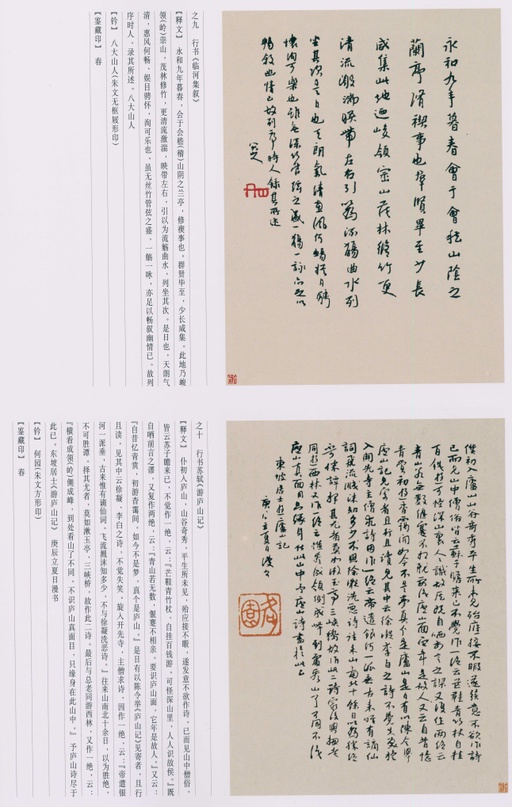 永和九年暮春會于會稽山陰之
蘭亭脩禊事也羣賢畢至少長
咸集此地迺峻領崇山茂林脩竹更
清流激湍暎帶左右引為流觴曲水列
坐其次是日也天朗氣清惠風何暢娛目騁
懷洵可樂也雖無絲竹管弦之盛一觴一詠亦足以
暢敘幽情已故列序時人錄其所述
八大山人
之九　行书《临河集叙》
【释文】　永和九年暮春，会于会嵇（稽）山阴之兰亭，修禊事也。群贤毕至，少长咸集。此地乃峻
领（岭）崇山，茂林修竹，更清流激湍，映带左右，引以为流觞曲水，列坐其次。是日也，天朗气
清，惠风何畅，娱目骋怀，洵可乐也，虽无丝竹管弦之盛，一觞一咏，亦足以畅叙幽情已。故列
序时人，录其所述。八大山人
【钤】　八大山人（朱文无框屐形印）
【鉴藏印】　春
僕初入廬山山谷奇秀平生所未見殆應接不暇遂發意不欲作詩
已而見山中僧俗皆云蘇子瞻來已不覺作一絕云芒鞋青竹杖自挂
百錢遊可怪深山裏人人識故侯既自哂前言之謬又復作兩絕云
青山若無數偃蹇不相親要識廬山面它年是故人又云自昔憶
青賞初遊杳靄間如今不是夢真个是廬山是日有以陳令舉
廬山記見寄者且行且讀見其中云徐凝李白之詩不覺失笑旋
入開先寺主僧求詩因作一絕云帝遣銀河一派垂古來惟有謫仙
詞飛流濺沫知多少不與徐凝洗惡詩往來山南北十餘日以為勝絕
不可勝談擇其尤者莫如漱玉亭三峽橋故作此二詩最後與總老
同遊西林又作一絕云橫看成領側成峰到處看山了不同不識
廬山真面目只緣身在此山中予廬山詩盡於此已
東坡居士遊廬山記
庚辰立夏日漫書
何園
之十　行书苏轼《游庐山记》
【释文】　仆初入庐山，山谷奇秀，平生所未见，殆应接不暇，遂发意不欲作诗。已而见山中僧俗，
皆云苏子瞻来已，不觉作一绝，云：『芒鞋青竹杖，自挂百钱游，可怪深山里，人人识故侯。』既
自哂前言之谬，又复作两绝，云：『青山若无数，偃蹇不相亲，要识庐山面，它年是故人。』又云：
『自昔忆青赏，初游杳霭间，如今不是梦，真个是庐山。』是日有以陈令举《庐山记》见寄者，且行
且读，见其中云徐凝、李白之诗，不觉失笑，旋入开先寺，主僧求诗，因作一绝，云：『帝遣银
河一派垂，古来惟有谪仙词，飞流溅沫知多少，不与徐凝洗恶诗。』往来山南北十余日，以为胜绝，
不可胜谭，择其尤者，莫如漱玉亭，三峡桥，故作此二诗。最后与总老同游西林，又作一绝，云：
『横看成领（岭）侧成峰，到处看山了不同，不识庐山真面目，只缘身在此山中。』予庐山诗尽于
此已，东坡居士《游庐山记》　庚辰立夏日漫书
【钤】　何园（朱文方形印）
【鉴藏印】　春